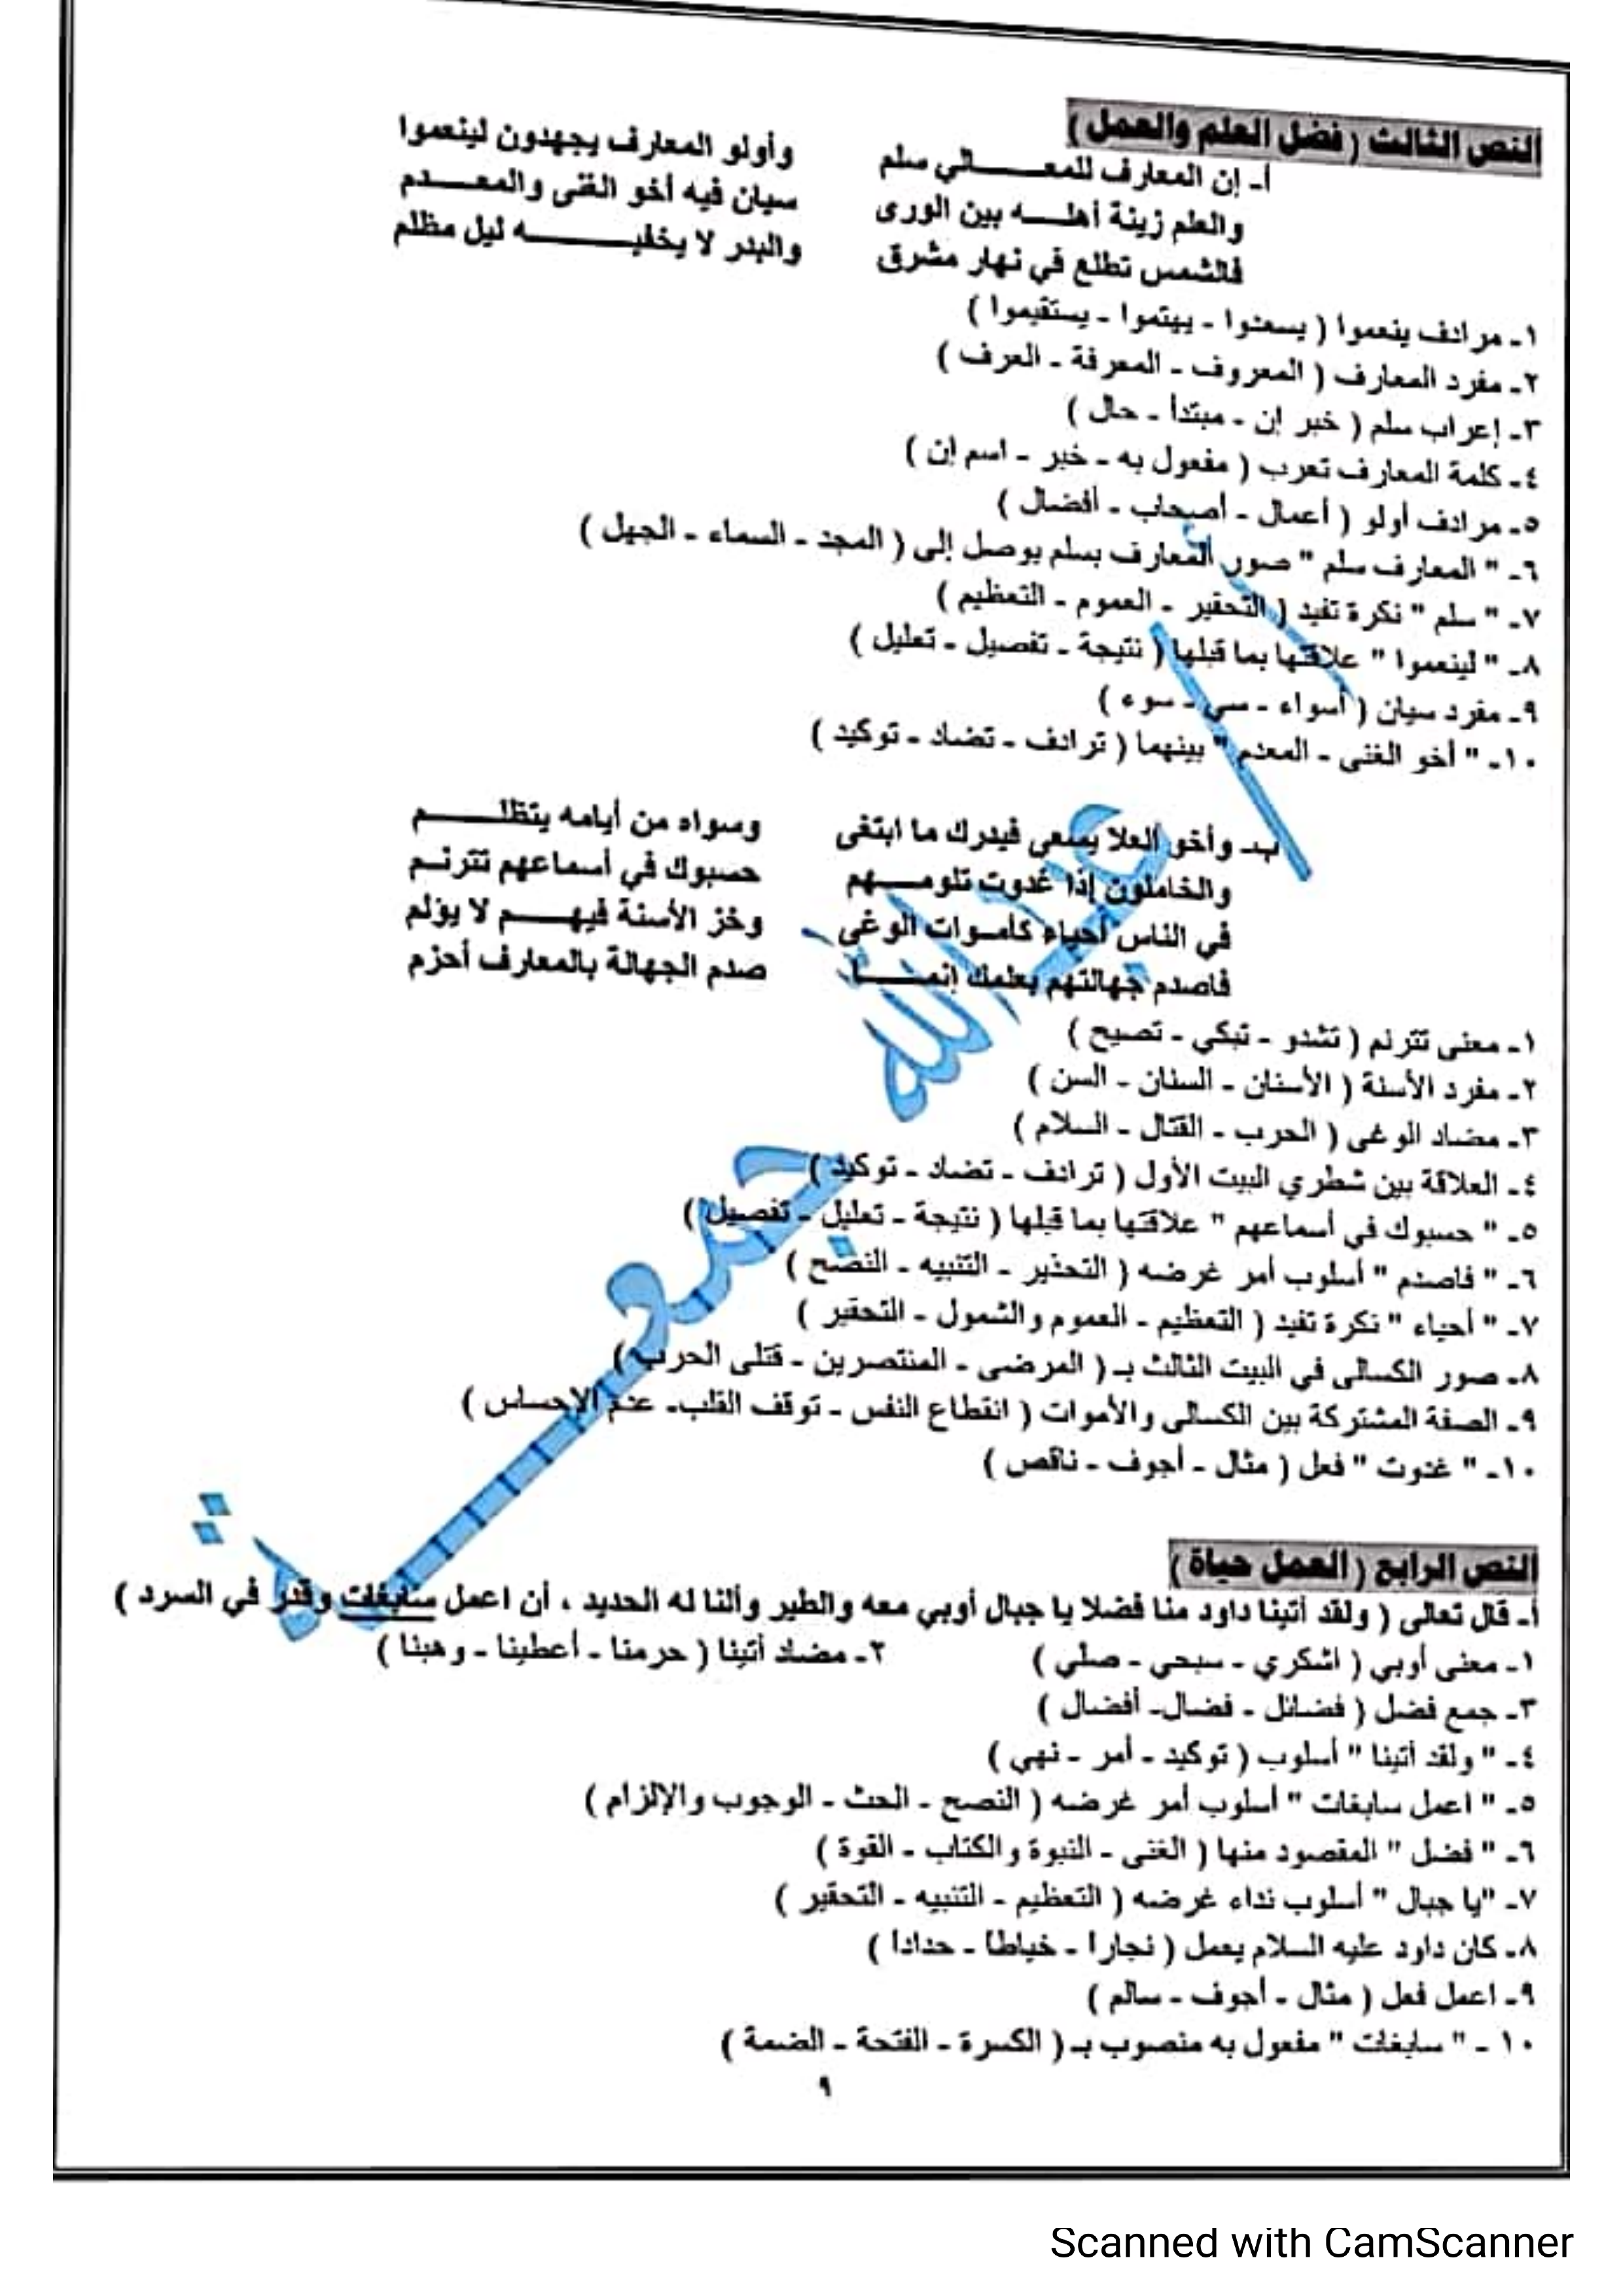 النص الثالث ( فضل العلم والعمل )
أ- إن المعارف للمعـــــالي سلم وأولو المعارف يجهدون لينعموا
والعلم زينة أهلـــه بين الورى سيان فيه أخو الغنى والمعـــدم
فالشمس تطلع في نهار مشرق والبدر لا يخفيــــــه ليل مظلم
١- مرادف ينعموا ( يسعدوا - يهتموا - يستقيموا )
٢- مفرد المعارف ( المعروف - المعرفة - العرف )
٣- إعراب سلم ( خبر إن - مبتدأ - حال )
٤- كلمة المعارف تعرب ( مفعول به - خبر - اسم إن )
٥- مرادف أولو ( أعمال - أصحاب - أفضال )
٦- " المعارف سلم " صور المعارف بسلم يوصل إلى ( المجد - السماء - الجهل )
٧- " سلم " نكرة تفيد ( التحقير - العموم - التعظيم )
٨- " لينعموا " علاقتها بما قبلها ( نتيجة - تفصيل - تعليل )
٩- مفرد سيان ( أسواء - سي - سوء )
١٠- " أخو الغنى - المعدم " بينهما ( ترادف - تضاد - توكيد )
ب- وأخو العلا يسعى فيدرك ما ابتغى وسواه من أيامه يتظلـــــم
والخاملون إذا غدوت تلومـــهم حسبوك في أسماعهم تترنــم
في الناس أحياء كأمـوات الوغى وخز الأسنة فيهـــم لا يؤلم
فاصدم جهالتهم بعلمك إنمـــــا صدم الجهالة بالمعارف أحزم
١- معنى تترنم ( تشدو - تبكي - تصيح )
٢- مفرد الأسنة ( الأسنان - السنان - السن )
٣- مضاد الوغى ( الحرب - القتال - السلام )
٤- العلاقة بين شطري البيت الأول ( ترادف - تضاد - توكيد )
٥- " حسبوك في أسماعهم " علاقتها بما قبلها ( نتيجة - تعليل - تفصيل )
٦- " فاصدم " أسلوب أمر غرضه ( التحذير - التنبيه - النصح )
٧- " أحياء " نكرة تفيد ( التعظيم - العموم والشمول - التحقير )
٨- صور الكسالى في البيت الثالث بـ ( المرضى - المنتصرين - قتلى الحرب )
٩- الصفة المشتركة بين الكسالى والأموات ( انقطاع النفس - توقف القلب- عدم الإحساس )
١٠- " غدوت " فعل ( مثال - أجوف - ناقص )
النص الرابع ( العمل حياة )
أ- قال تعالى ( ولقد أتينا داود منا فضلا يا جبال أوبي معه والطير وألنا له الحديد ، أن اعمل سابغات وقدر في السرد )
١- معنى أوبي ( اشكري - سبحي - صلي ) ٢- مضاد أتينا ( حرمنا - أعطينا - وهبنا )
٣- جمع فضل ( فضائل - فضال- أفضال )
٤- " ولقد أتينا " أسلوب ( توكيد - أمر - نهي )
٥- " اعمل سابغات " أسلوب أمر غرضه ( النصح - الحث - الوجوب والإلزام )
٦- " فضل " المقصود منها ( الغنى - النبوة والكتاب - القوة )
٧- "يا جبال " أسلوب نداء غرضه ( التعظيم - التنبيه - التحقير )
٨- كان داود عليه السلام يعمل ( نجارا - خياطا - حدادا )
٩- اعمل فعل ( مثال - أجوف - سالم )
١٠ - " سابغات " مفعول به منصوب بـ ( الكسرة - الفتحة - الضمة )
٩
أ / عبدالله جمعة
Scanned with CamScanner